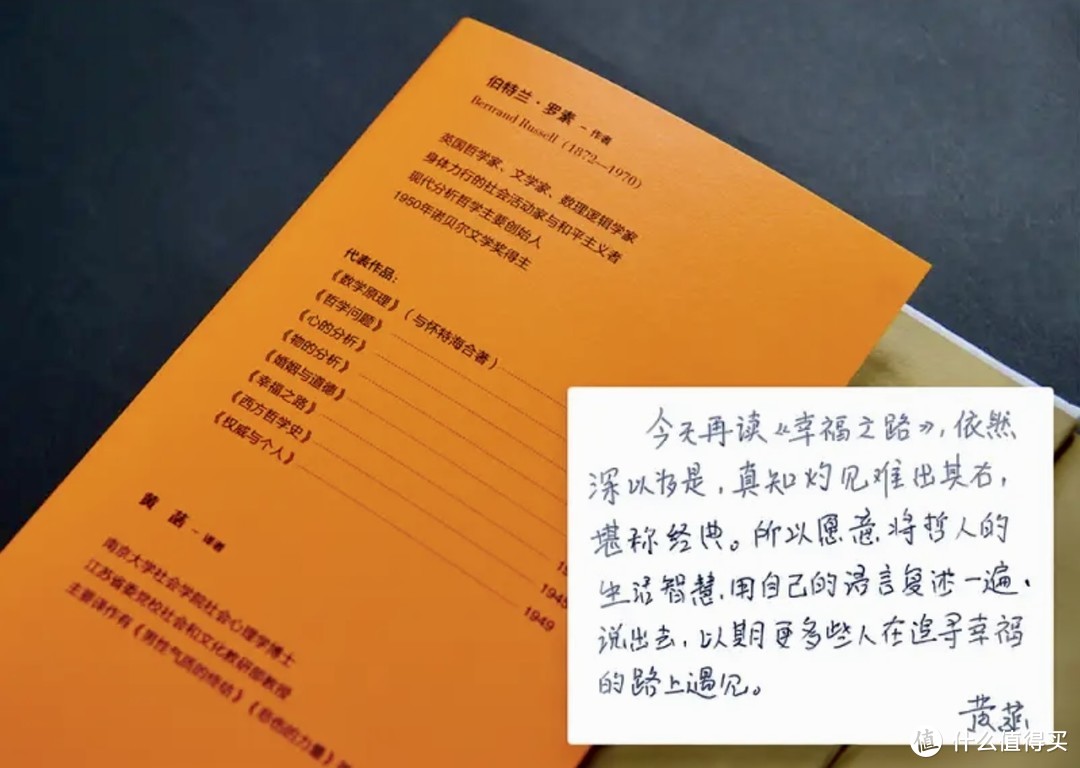 伯特兰·罗素 – 作者
Bertrand Russell (1872—1970)
英国哲学家、文学家、数理逻辑学家
身体力行的社会活动家与和平主义者
现代分析哲学主要创始人
1950年诺贝尔文学奖得主
代表作品:
《数学原理》(与怀特海合著)
《哲学问题》
《心的分析》
《物的分析》
《婚姻与道德》
《幸福之路》
《西方哲学史》
1945
《权威与个人》
1949
黄菡 – 译者
南京大学社会学院社会心理学博士
江苏省委党校社会和文化教研部教授
主要译作有《男性气质的终结》《悲伤的力量》
今天再读《幸福之路》,依然
深以为是,真知灼见难出其右,
堪称经典。所以愿意将哲人的
生活智慧,用自己的语言复述一遍、
说出去,以期更多些人在追寻幸福
的路上遇见。
黄菡
值 什么值得买